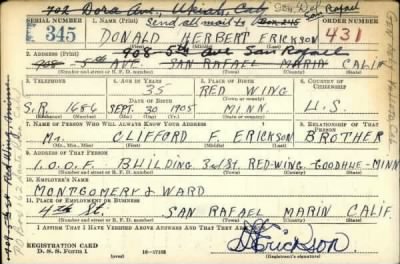 702 Dora Ave, Ukiah, Cal
Send all mail to Box 245
San Rafael
SERIAL NUMBER
1. NAME (Print)
ORDER NUMBER
E 345
DONALD HERBERT ERICKSON
431
(First) (Middle) (Last)
908 - 5th Ave San Rafael
2. ADDRESS (Print)
908 - 5th AVE. SAN RAFAEL MARIN CALIF
(Number and street or R. F. D. number) (Town) (County) (State)
3. TELEPHONE
4. AGE IN YEARS
5. PLACE OF BIRTH
6. COUNTRY OF CITIZENSHIP
35
RED WING
DATE OF BIRTH
(Town or county)
S.R. 1686
SEPT. 30 1905
MINN
U.S.
(Exchange) (Number)
(Mo.) (Day) (Yr.)
(State or country)
7. NAME OF PERSON WHO WILL ALWAYS KNOW YOUR ADDRESS
8. RELATIONSHIP OF THAT PERSON
Mr. CLIFFORD F. ERICKSON BROTHER
(Mr., Mrs., Miss) (First) (Middle) (Last)
9. ADDRESS OF THAT PERSON
I.O.O.F BUILDING 3rd St. RED-WING, GOODHUE-MINN
(Number and street or R. F. D. number) (Town) (County) (State)
10. EMPLOYER'S NAME
MONTGOMERY & WARD
11. PLACE OF EMPLOYMENT OR BUSINESS
4th St. SAN RAFAEL MARIN CALIF.
(Number and street or R. F. D. number) (Town) (County) (State)
I AFFIRM THAT I HAVE VERIFIED ABOVE ANSWERS AND THAT THEY ARE TRUE.
REGISTRATION CARD
D. S. S. Form 1
16-17105
D Erickson.
(Registrant's signature)